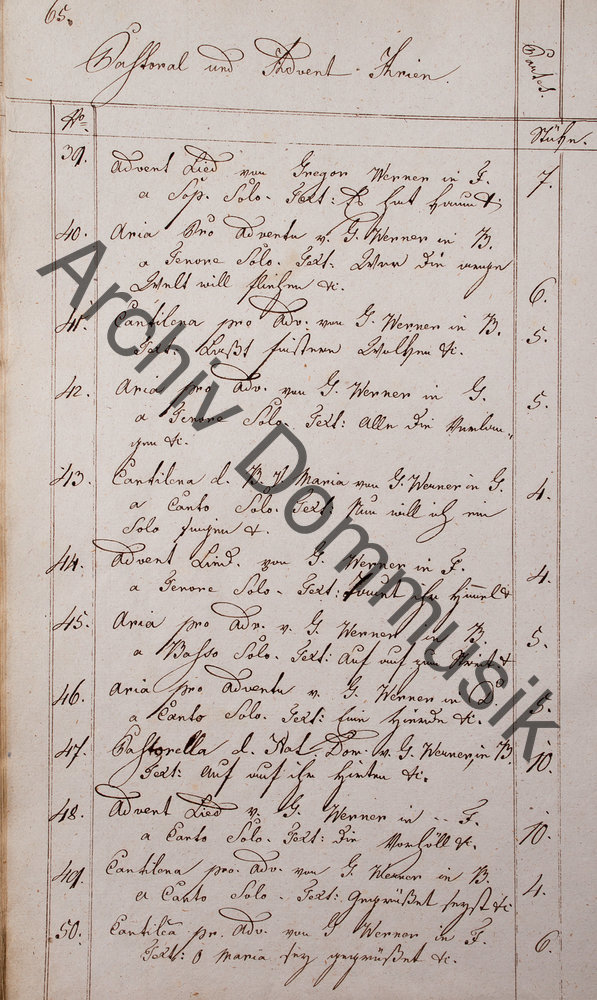 65.
Pastoral und Advent Arien.
Partes.
No.
Stüke.
39. Advent Lied von Gregor Werner in F. 7.
a Sop. Solo. Text: Es hat &c.
40. Aria Pro Adventu v. G. Werner in B.
a Tenore Solo. Text. Wer die arge
Welt will fliehen &c. 6.
41. Cantilena pro Adv. von G. Werner in B. 5.
Text. Laßt finstere Wolken &c.
42. Aria pro Adv. von G. Werner in G. 5.
a Tenore Solo. Text: Alle die Verlan-
gen &c.
43. Cantilena d. B. V. Maria von G. Werner in G. 4.
a Canto Solo. Text: Nun will ich ein
Solo singen &c.
44. Advent Lied. von G. Werner in F. 4.
a Tenore Solo. Text: Thauet ihr Himel &c
45. Aria pro Adv. v. G. Werner in B. 5.
a Basso Solo. Text: Auf auf zum &c
46. Aria pro Adventu v. G. Werner in D. 5.
a Canto Solo. Text: &c.
47. Pastorella d. Nat. Dom. v. G. Werner, in B. 10.
Text: Auf auf ihr Hirten &c.
48. Advent Lied v. G. Werner in -- F. 10.
a Canto Solo. Text: Die Vorhöll &c.
49. Cantilena pro. Adv. von G. Werner in B. 4.
a Canto Solo - Text: Gegrüßet seyst &c
50. Cantilea pr. Adv. von G Werner in F. 6.
Text: O Maria sey gegrüßet &c.
Archiv Dommusik